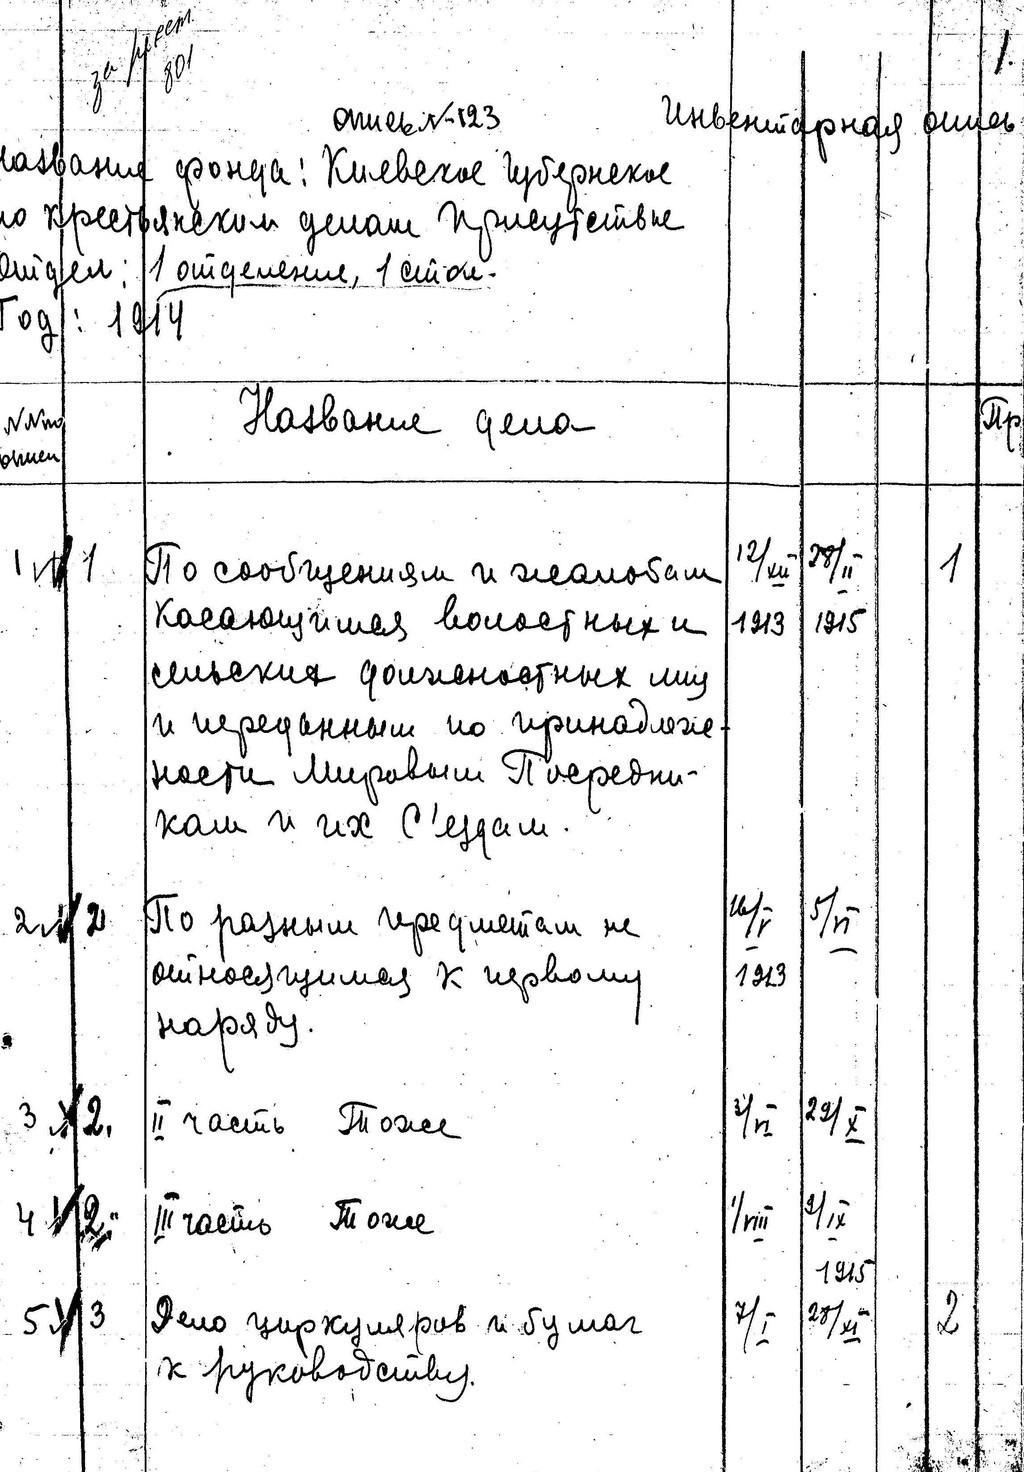 за реест.
801
1.
опись №123 Инвентарная опись
Название фонда: Киевское Губернское
по крестьянским делам Присутствие
Отдел: 1 отделение, 1 стол.
Год: 1914
NN по описи
Название дела
Пр
1 1 По сообщениям и жалобам 12/XII 28/II 1
касающимся волостных и 1913 1915
сельских должностных лиц
и переданным по принадлеж-
ности Мировым Посредни-
кам и их С'ездам.
2 2 По разным предметам не 16/V 5/VI
относящимся к первому 1913
наряду.
3 2. II часть Тоже 3/VI 29/X
4 2. III часть Тоже 1/VIII 9/IX
1915
5 3 Дело циркуляров и бумаг 7/I 28/XI 2
к руководству.